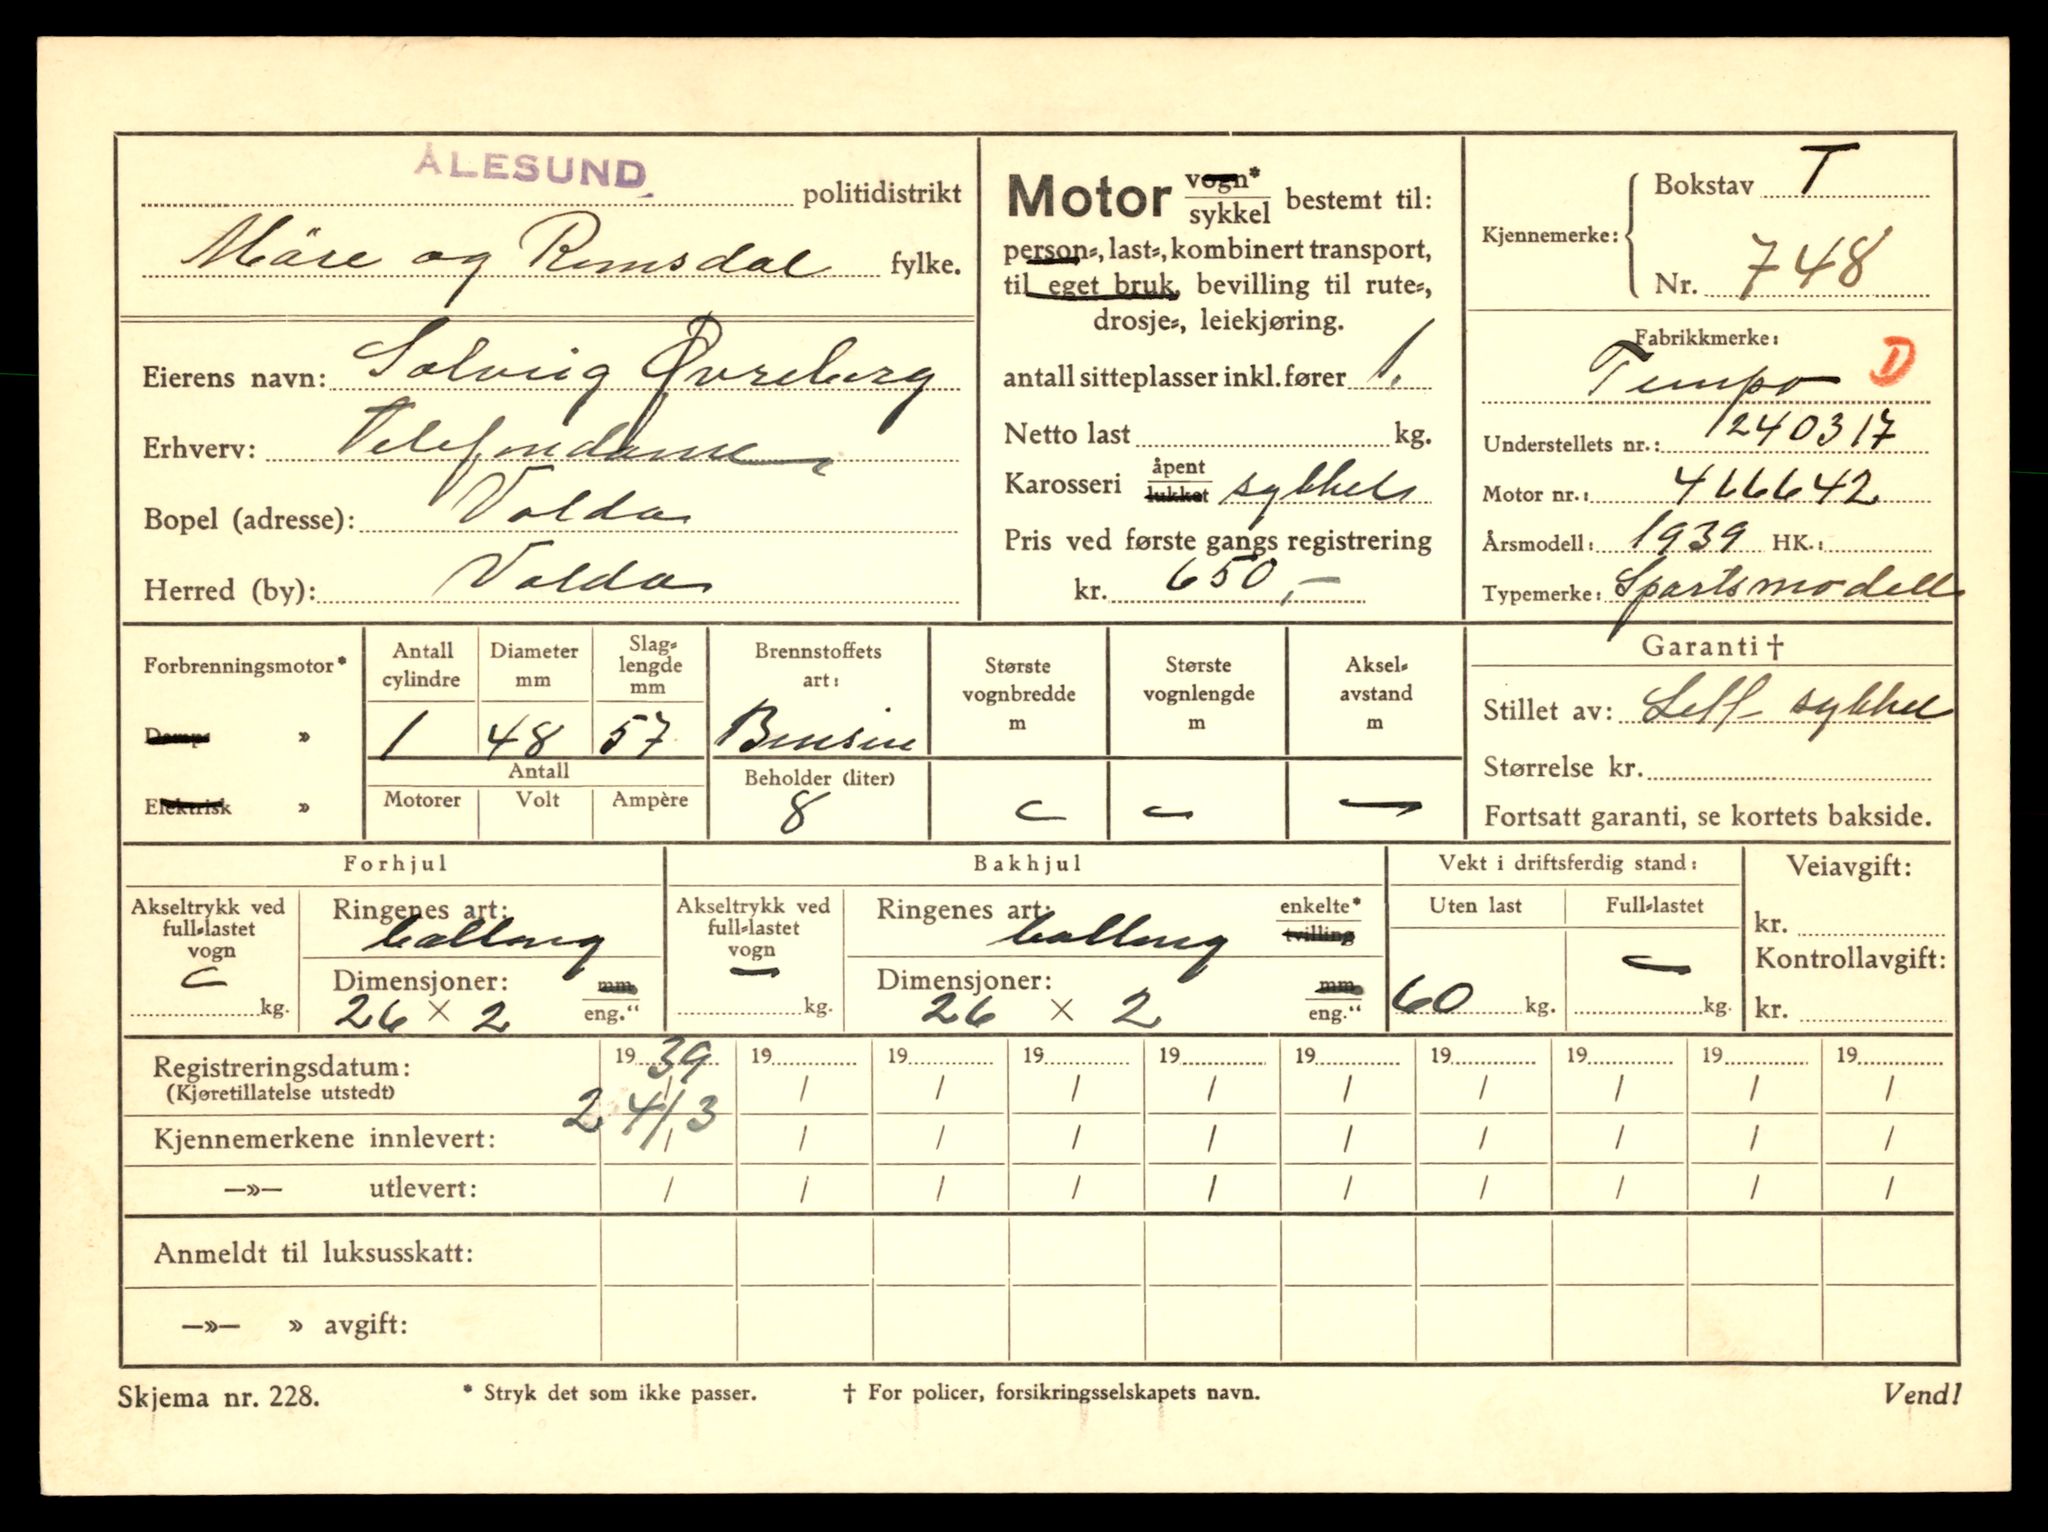 ÅLESUND politidistrikt
Möre og Romsdal fylke.
Eierens navn: Solveig Øvreberg
Erhverv: Telefondame
Bopel (adresse): Volda
Herred (by): Volda
Motor vogn*/sykkel bestemt til:
person-, last-, kombinert transport,
til eget bruk, bevilling til rute-,
drosje-, leiekjøring.
antall sitteplasser inkl. fører 1.
Netto last kg.
Karosseri åpent/lukket sykkel
Pris ved første gangs registrering
kr. 650,-
Kjennemerke: Bokstav T
Nr. 748
Fabrikkmerke:
Tempo D
Understellets nr.: 1240317
Motor nr.: 466642
Årsmodell: 1939 HK.:
Typemerke: Sportsmodell
Forbrenningsmotor*
Damp- »
Elektrisk »
Antall cylindre
Diameter mm
Slag-lengde mm
Brennstoffets art:
Største vognbredde m
Største vognlengde m
Aksel-avstand m
1 48 57 Bensin
Antall
Motorer Volt Ampère
Beholder (liter)
8
Garanti †
Stillet av: sykkel
Størrelse kr.
Fortsatt garanti, se kortets bakside.
Forhjul
Akseltrykk ved full-lastet vogn
kg.
Ringenes art:
ballong
Dimensjoner: mm
26 × 2 eng."
Bakhjul
Akseltrykk ved full-lastet vogn
— kg.
Ringenes art: enkelte*
ballong tvilling
Dimensjoner: mm
26 × 2 eng."
Vekt i driftsferdig stand:
Uten last Full-lastet
60 kg. — kg.
Veiavgift:
kr.
Kontrollavgift:
kr.
Registreringsdatum: 1939 19 19 19 19 19 19 19 19 19
(Kjøretillatelse utstedt) 24/3 / / / / / / / / /
Kjennemerkene innlevert: / / / / / / / / / /
—»— utlevert: / / / / / / / / / /
Anmeldt til luksusskatt:
—»— » avgift:
Skjema nr. 228. * Stryk det som ikke passer. † For policer, forsikringsselskapets navn. Vend!